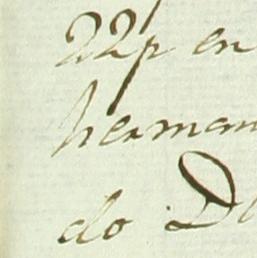 22p en
herman
do D